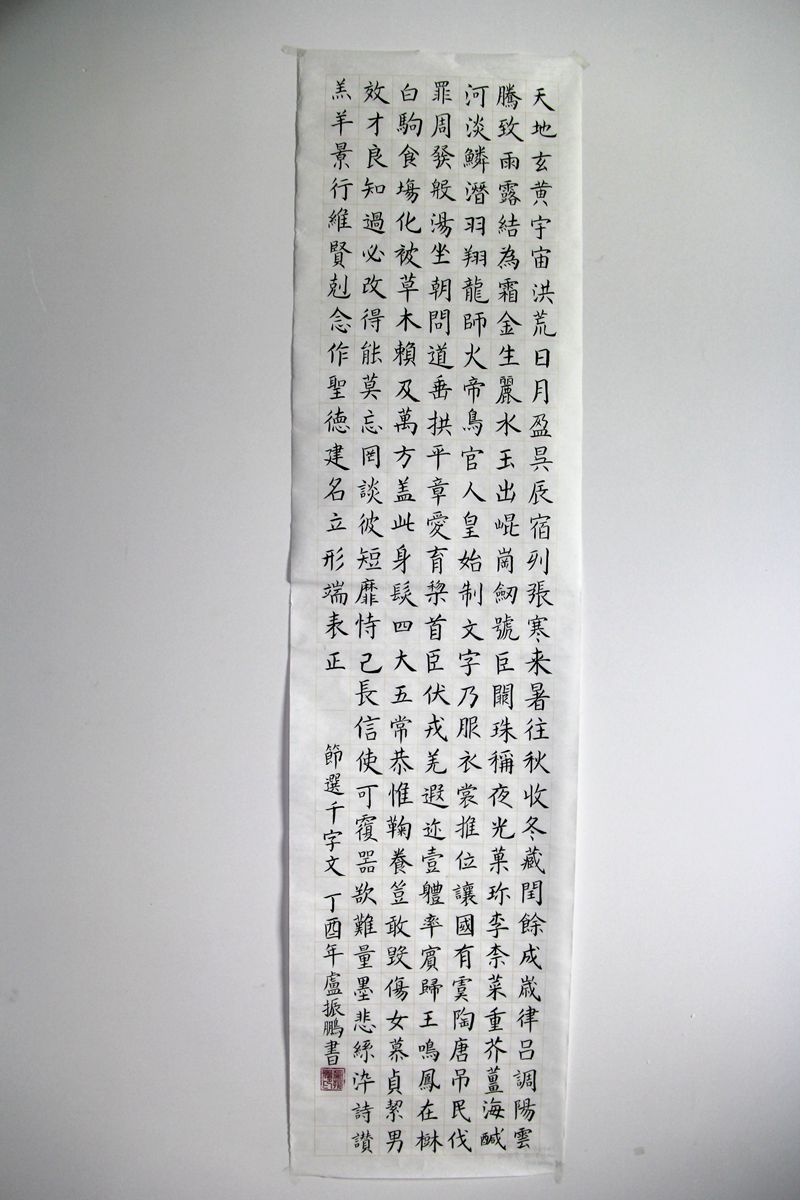 天地玄黄宇宙洪荒日月盈昃辰宿列張寒来暑往秋收冬藏閏餘成歲律吕調陽雲
騰致雨露結為霜金生麗水玉出崐崗劒號巨闕珠稱夜光菓珎李柰菜重芥薑海醎
河淡鱗潛羽翔龍師火帝鳥官人皇始制文字乃服衣裳推位讓國有虞陶唐吊民伐
罪周發殷湯坐朝問道垂拱平章愛育黎首臣伏戎羌遐迩壹體率賓歸王鳴鳳在樹
白駒食塲化被草木賴及萬方盖此身髮四大五常恭惟鞠養豈敢毀傷女慕貞絜男
效才良知過必改得能莫忘罔談彼短靡恃己長信使可覆器欲難量墨悲絲淬詩讃
羔羊景行維賢剋念作聖德建名立形端表正 節選千字文 丁酉年盧振鵬書